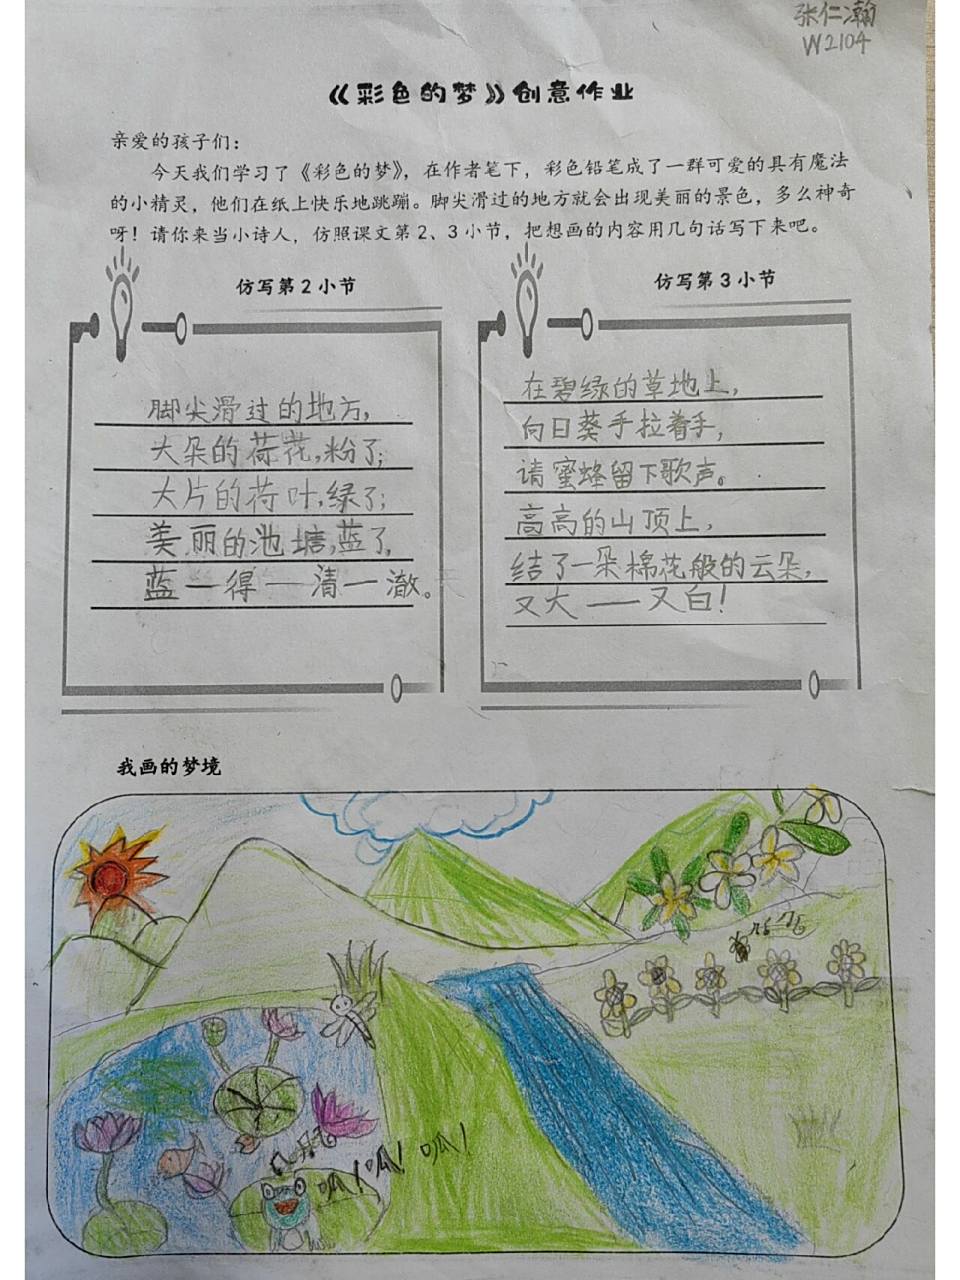 张仁瀚
W2104
《彩色的梦》创意作业
亲爱的孩子们：
今天我们学习了《彩色的梦》，在作者笔下，彩色铅笔成了一群可爱的具有魔法
的小精灵，他们在纸上快乐地跳蹦。脚尖滑过的地方就会出现美丽的景色，多么神奇
呀！请你来当小诗人，仿照课文第2、3小节，把想画的内容用几句话写下来吧。
仿写第2小节
脚尖滑过的地方，
大朵的荷花，粉了；
大片的荷叶，绿了；
美丽的池塘，蓝了，
蓝—得—清—澈。
仿写第3小节
在碧绿的草地上，
向日葵手拉着手，
请蜜蜂留下歌声。
高高的山顶上，
结了一朵棉花般的云朵，
又大——又白！
我画的梦境
呱！呱！呱！